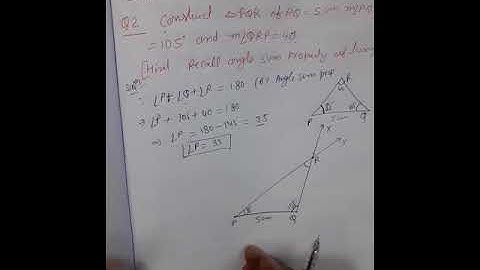 Q2. Construct △PQR if PQ = 5cm m∠PQR
= 105° and m∠QRP = 40
[Hint Recall angle sum property of
Sol
∴ ∠P + ∠Q + ∠R = 180 (By Angle sum prop
⇒ ∠P + 105 + 40 = 180
⇒ ∠P = 180 - 145 = 35
∠P = 35
R
P
5cm
Q
X
Y
R
P
5cm
Q